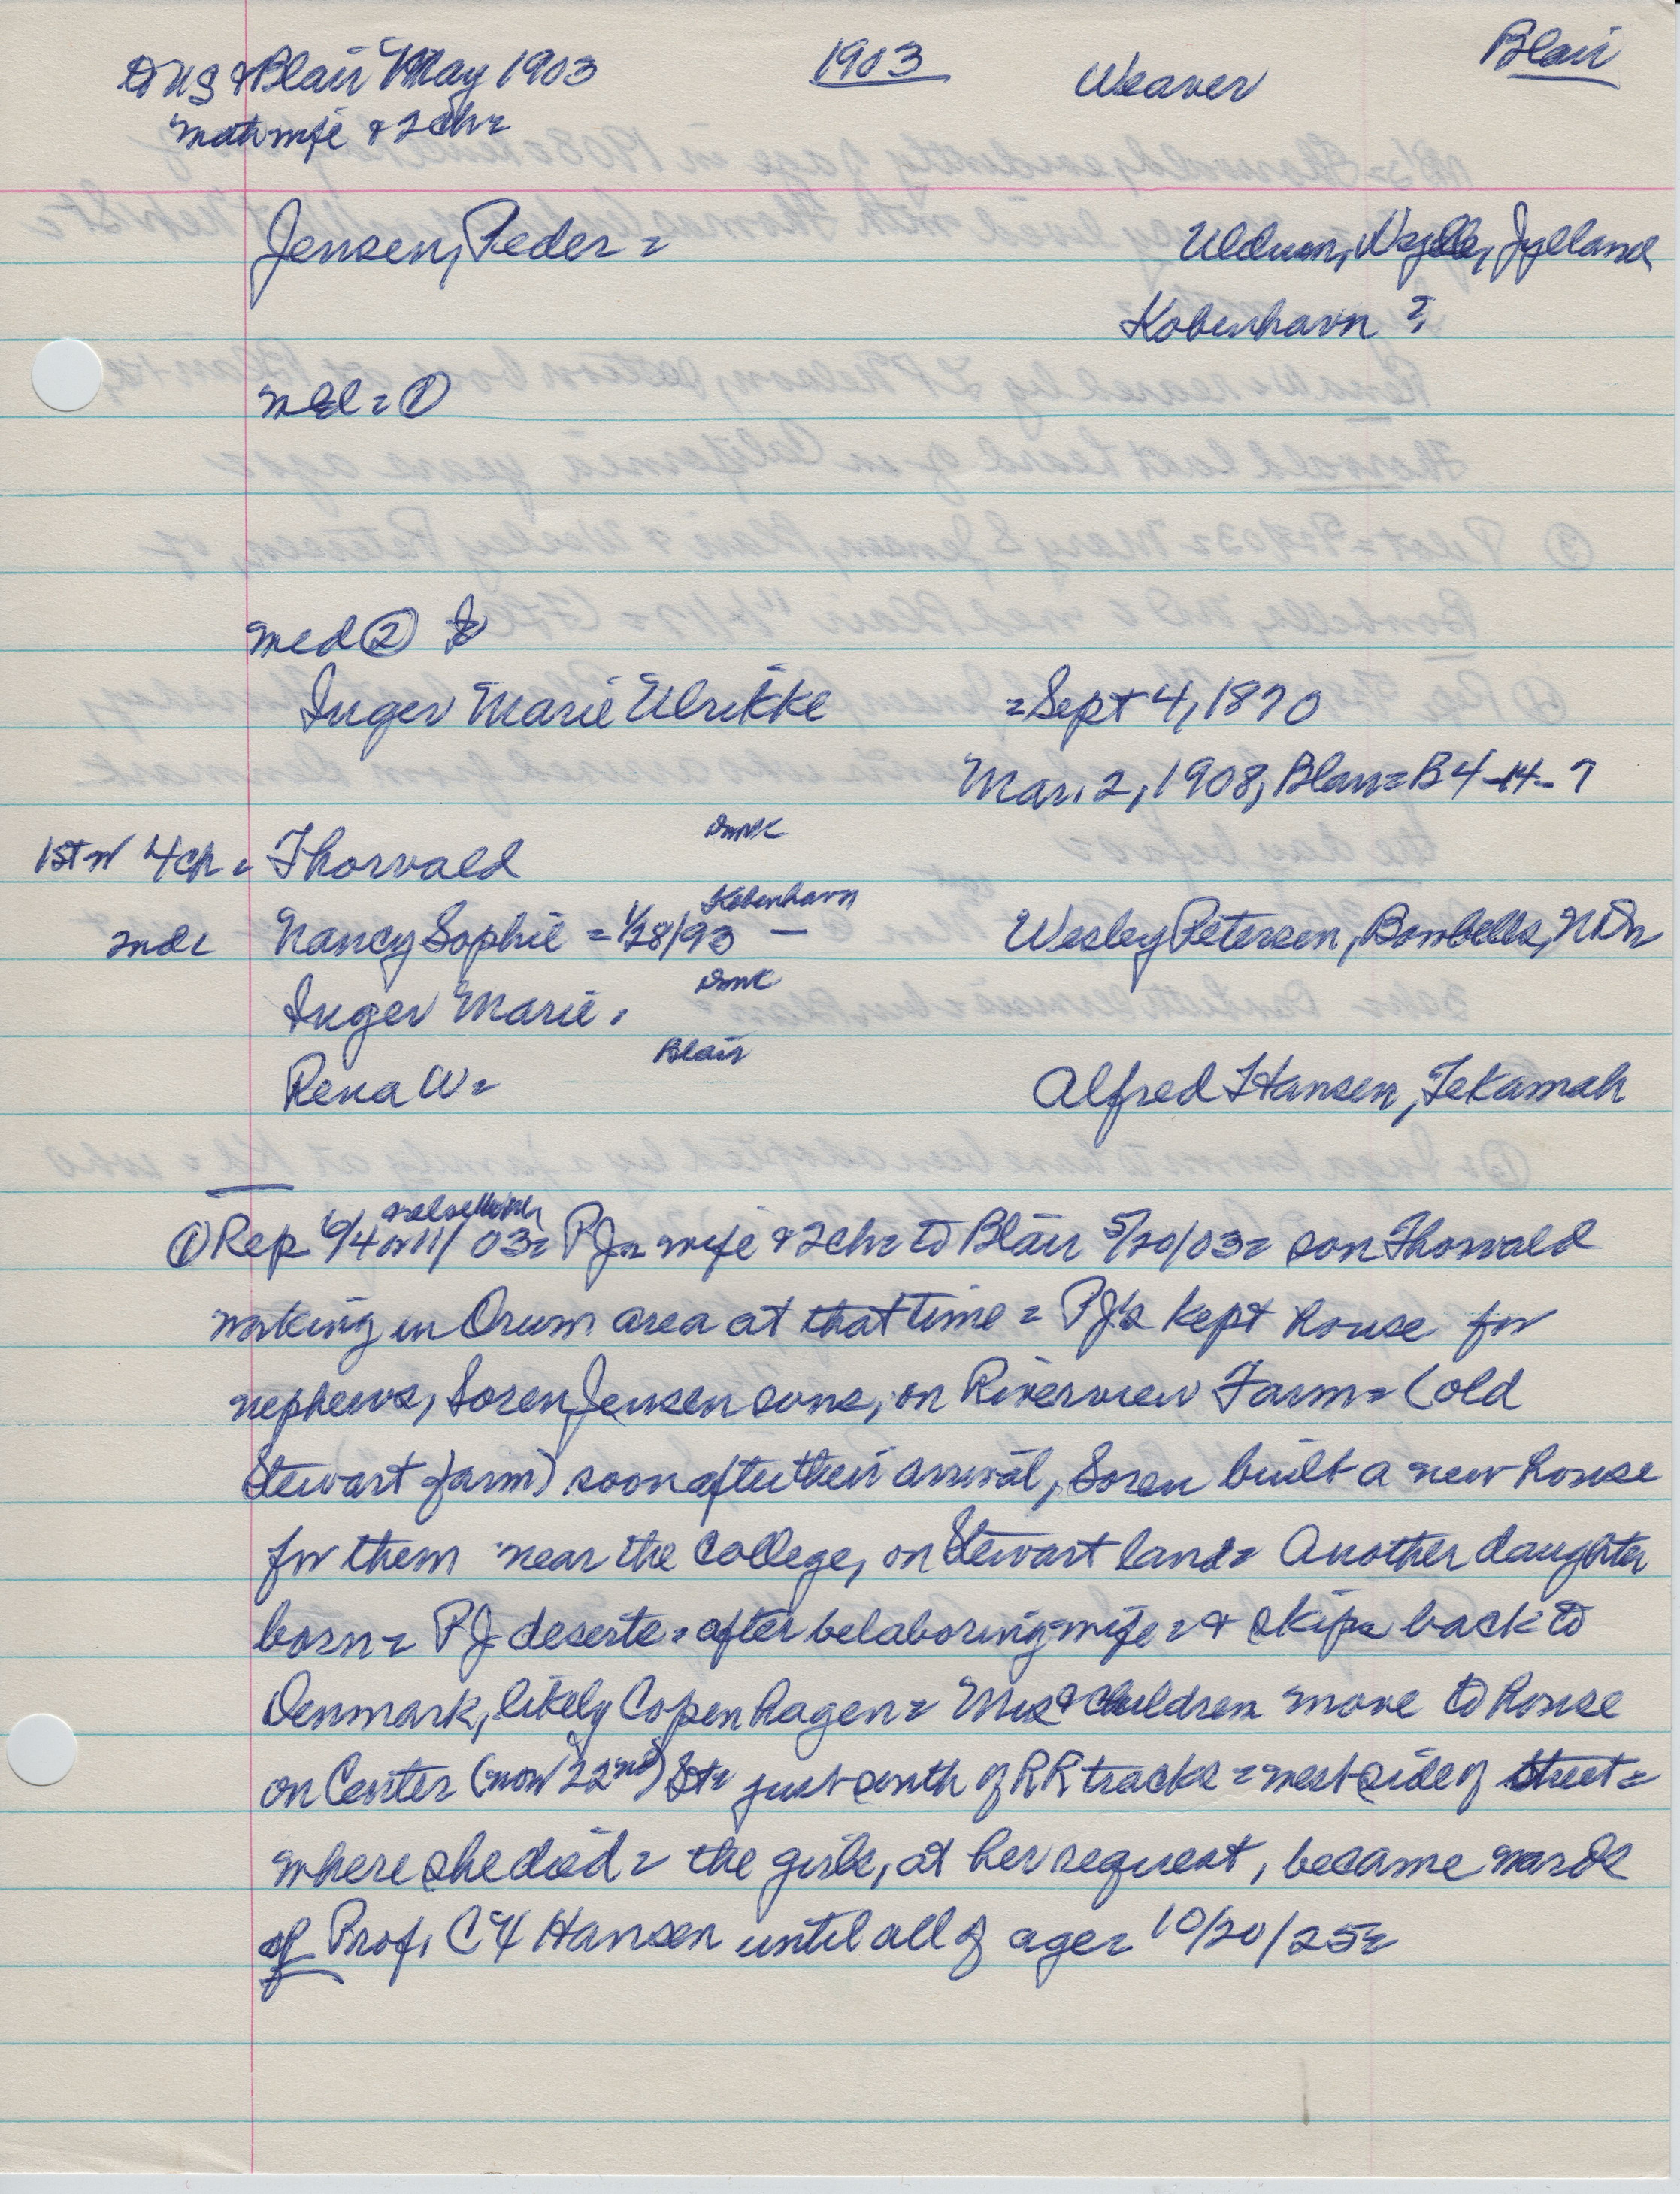 US & Blair May 1903 1903 Weaver Blair
with wife & 2 ch=
Jensen, Peder = Uldum, Vejlle, Jylland
Kobenhavn ?
med = ①
med ②
Inger Marie Ulrikke = Sept 4, 1870
Mar. 2, 1908, Blair = B4-14-7
1st w 4 ch = Thorvald Dmk
2nd = Nancy Sophie = 1/28/93 Kobenhavn — Wesley Petersen, Bowbells, ND=
Inger Marie. Dmk
Rena W = Blair Alfred Hansen, Tekamah
① Rep 6/4 or 11/03 = PJ = wife & 2 ch = to Blair 5/20/03 = son Thorvald
working in Orum area at that time = PJ's kept house for
nephews, Soren Jensen sons, on Riverview Farm = (old
Stewart farm) soon after their arrival, Soren built a new house
for them near the college, on Stewart land = Another daughter
born = PJ deserts = after belaboring wife = & skips back to
Denmark, likely Copenhagen = Mrs & children move to house
on Center (now 22nd) St = just south of RR tracks = west side of street =
where she died = the girls, at her request, became wards
of Prof. C X Hansen until all of age = 10/20/25 =